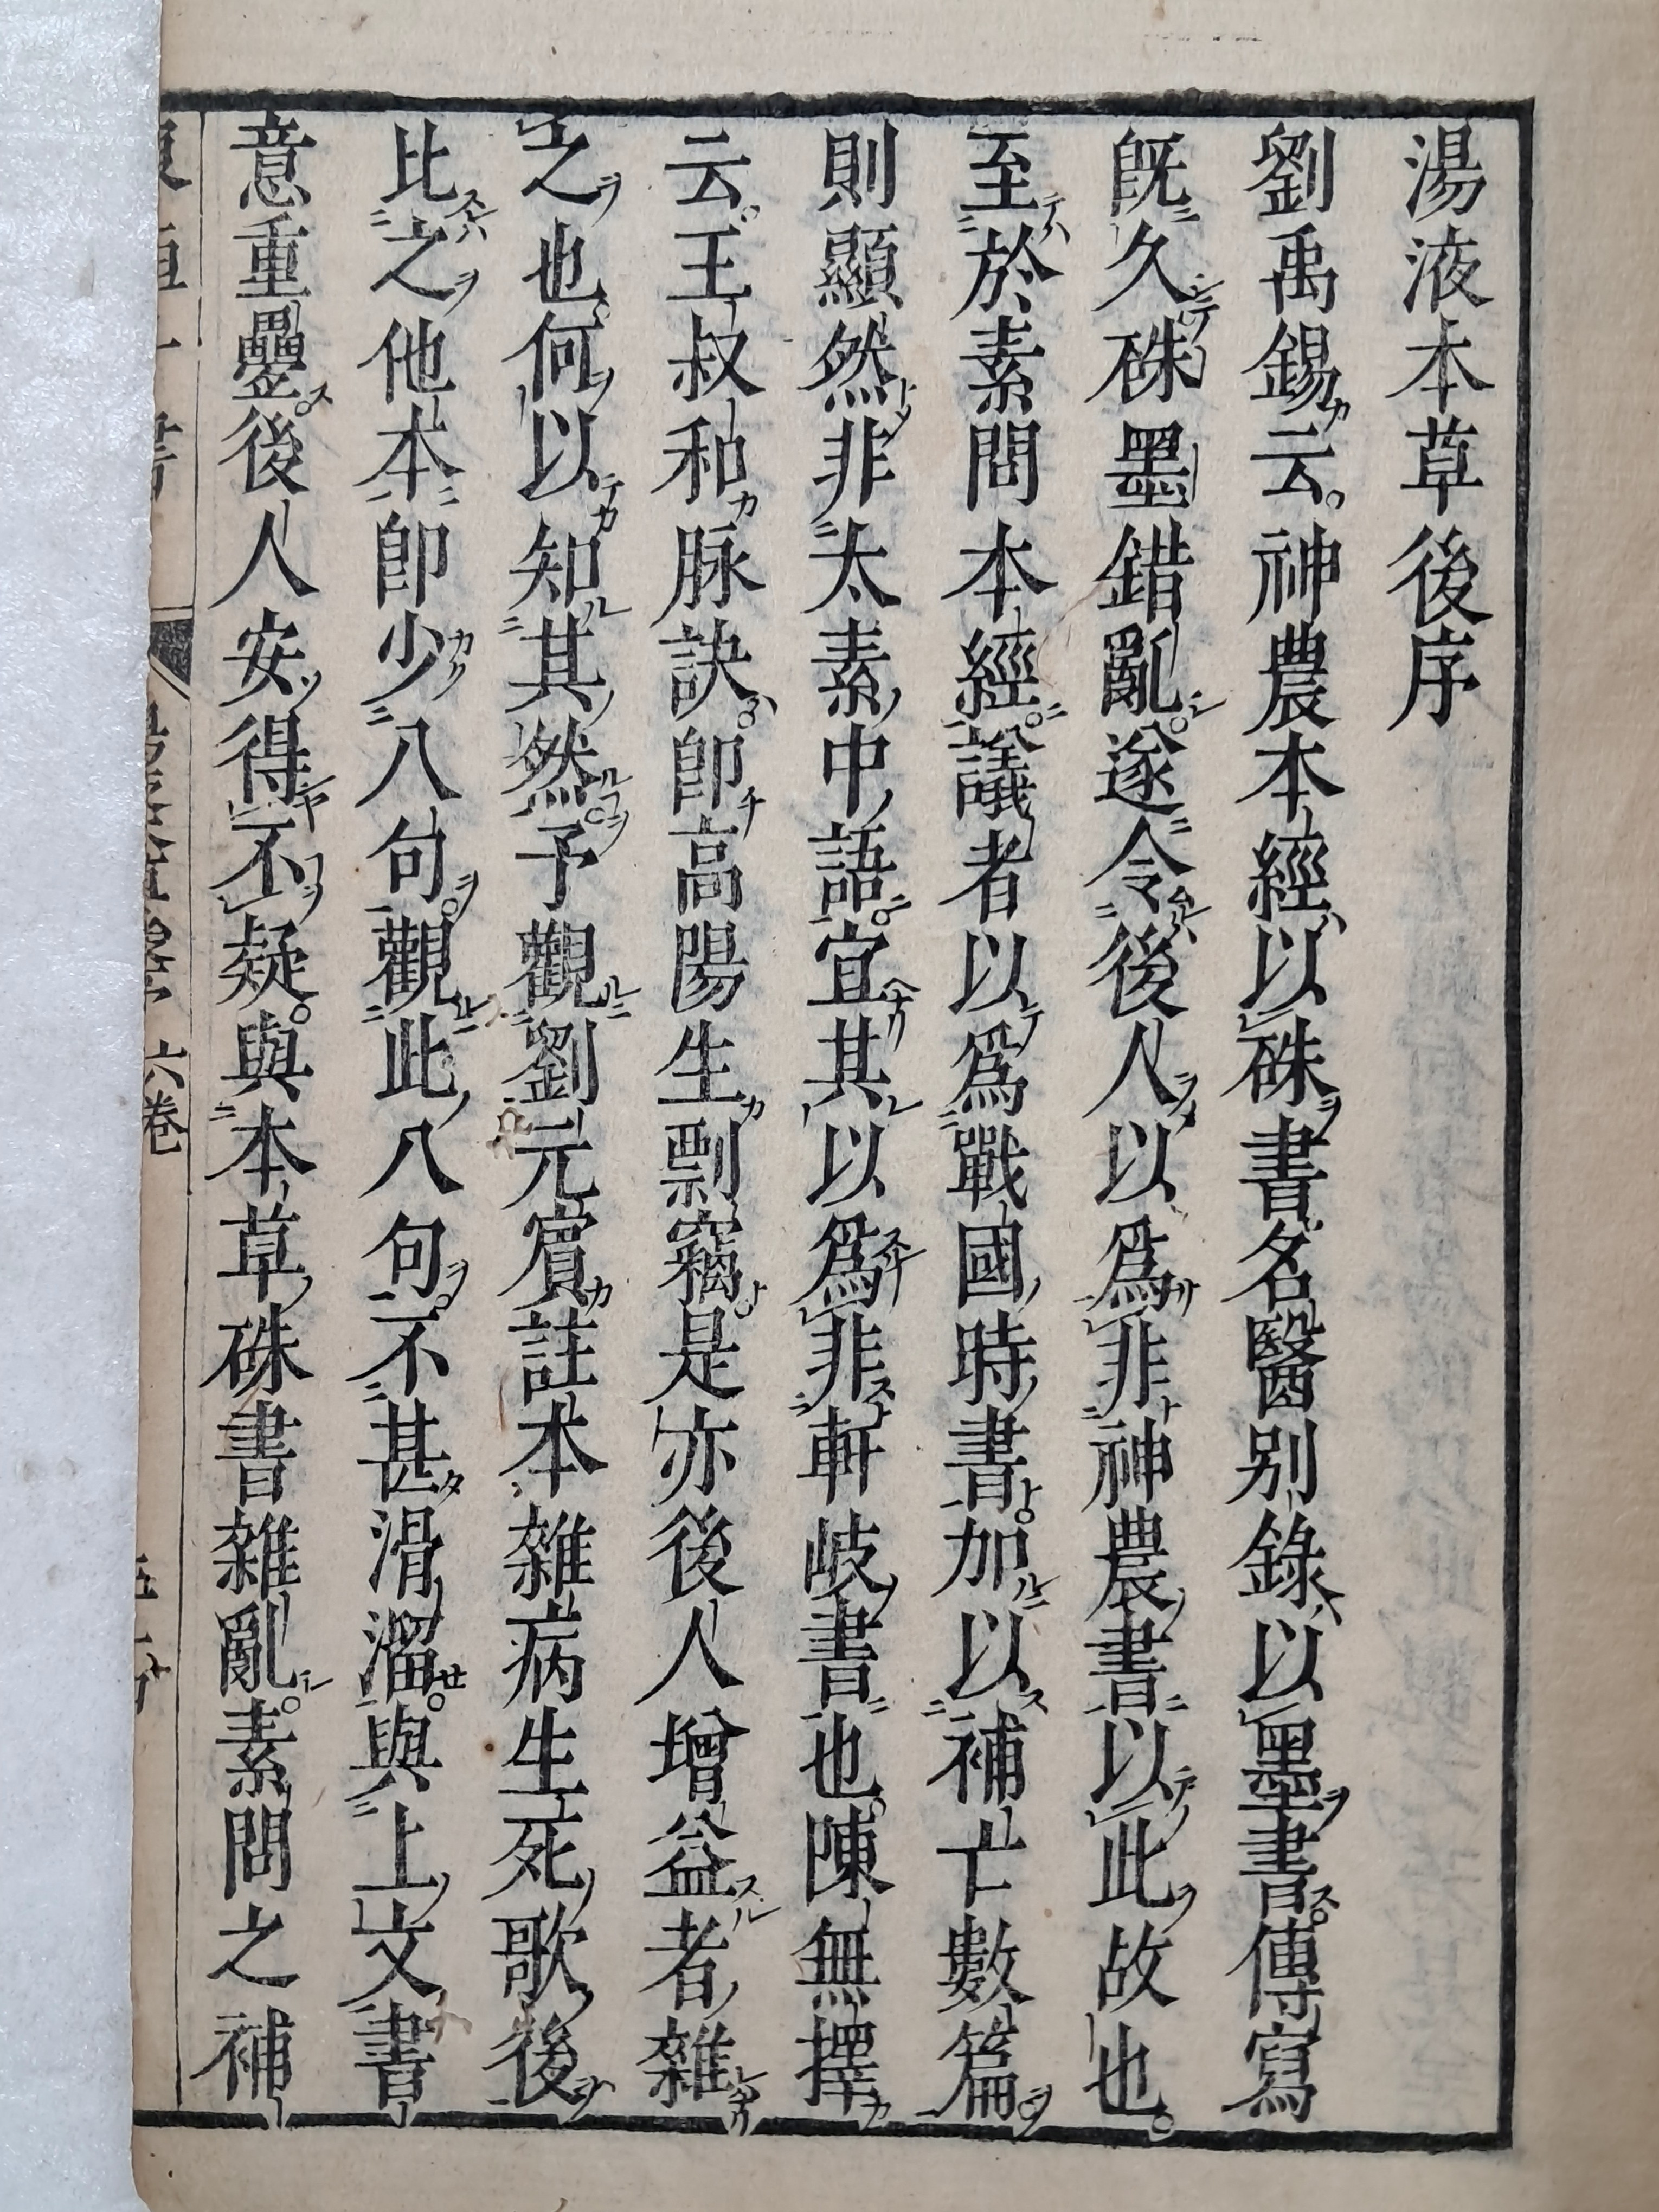 湯液本草後序
劉禹錫云神農本經以硃書名醫别錄以墨書傳寫
旣久硃墨錯亂遂令後人以爲非神農書以此故也
至於素問本經議者以爲戰國時書加以補亡數篇
則顯然非太素中語宜其以爲非軒岐書也陳無擇
云王叔和脉訣卽高陽生剽竊是亦後人增益者雜
之也何以知其然予觀劉元賓註本雜病生死歌後
比之他本卽少八句觀此八句不甚滑溜與上文書
意重疊後人安得不疑與本草硃書雜亂素問之補
六卷